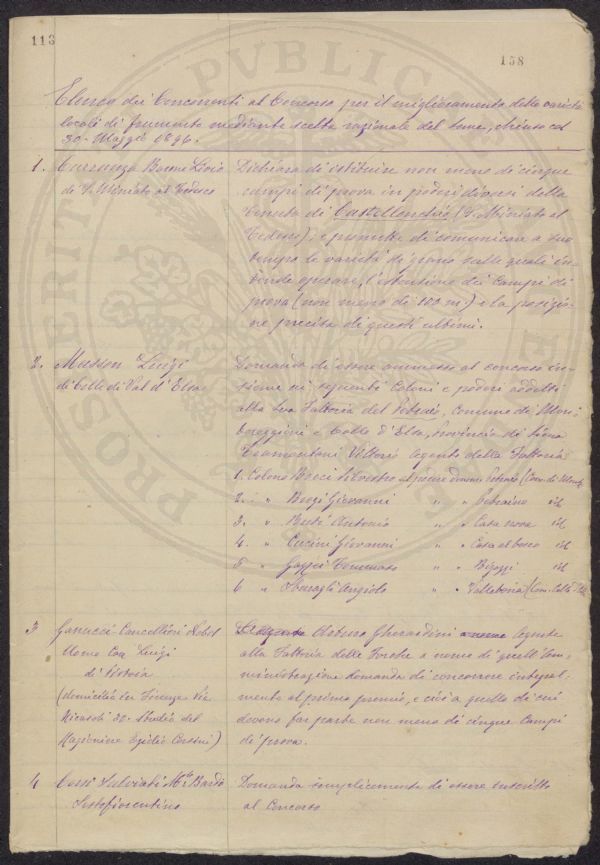 113
158
PVBLICAE
PROSPERITATI
Elenco dei Concorrenti al Concorso per il miglioramento delle varietà
locali di frumento mediante scelta razionale del seme, chiuso col
30 Maggio 1896.
1. Carranza Barone Livio
di S. Miniato al Tedesco
Dichiara di istituire non meno di cinque
campi di prova in poderi diversi della
Tenuta di Castellonchio (S. Miniato al
Tedesco); e promette di comunicare a suo
tempo le varietà di grano sulle quali in-
tende operare, l'estensione dei Campi di
prova (non meno di 100 m.) e la posizio-
ne precisa di questi ultimi.
2. Masson Luigi
di Colle di Val d'Elsa
Domanda di essere ammesso al concorso in-
sieme ai seguenti Coloni e poderi addetti
alla sua Fattoria del Comune di Monte-
riggioni e Colle d'Elsa, Provincia di Siena
Tramontani Vittorio Agente della Fattoria
1. Colono Silvestro al podere
2. " Giovanni " "
id
3. " Antonio " " Casa nova id
4. " Cucini Giovanni " " Casa al bosco id
5 " Tommaso " " id
6 " Angiolo " "
3 Ganucci-Cancellieri Nobil
Uomo Cav. Luigi
di Pistoia
(domicilio in Firenze Via
Ricasoli Studio del
Ragioniere Egidio Corsini)
Arturo Gherardini Agente
alla Fattoria delle a nome di quell'Am-
ministrazione domanda di concorrere integral-
mente al primo premio, e cioè a quello di cui
devono far parte non meno di cinque Campi
di prova.
4 Corsi Salviati M.se Bardo
Sestofiorentino
Domanda semplicemente di essere inscritto
al Concorso